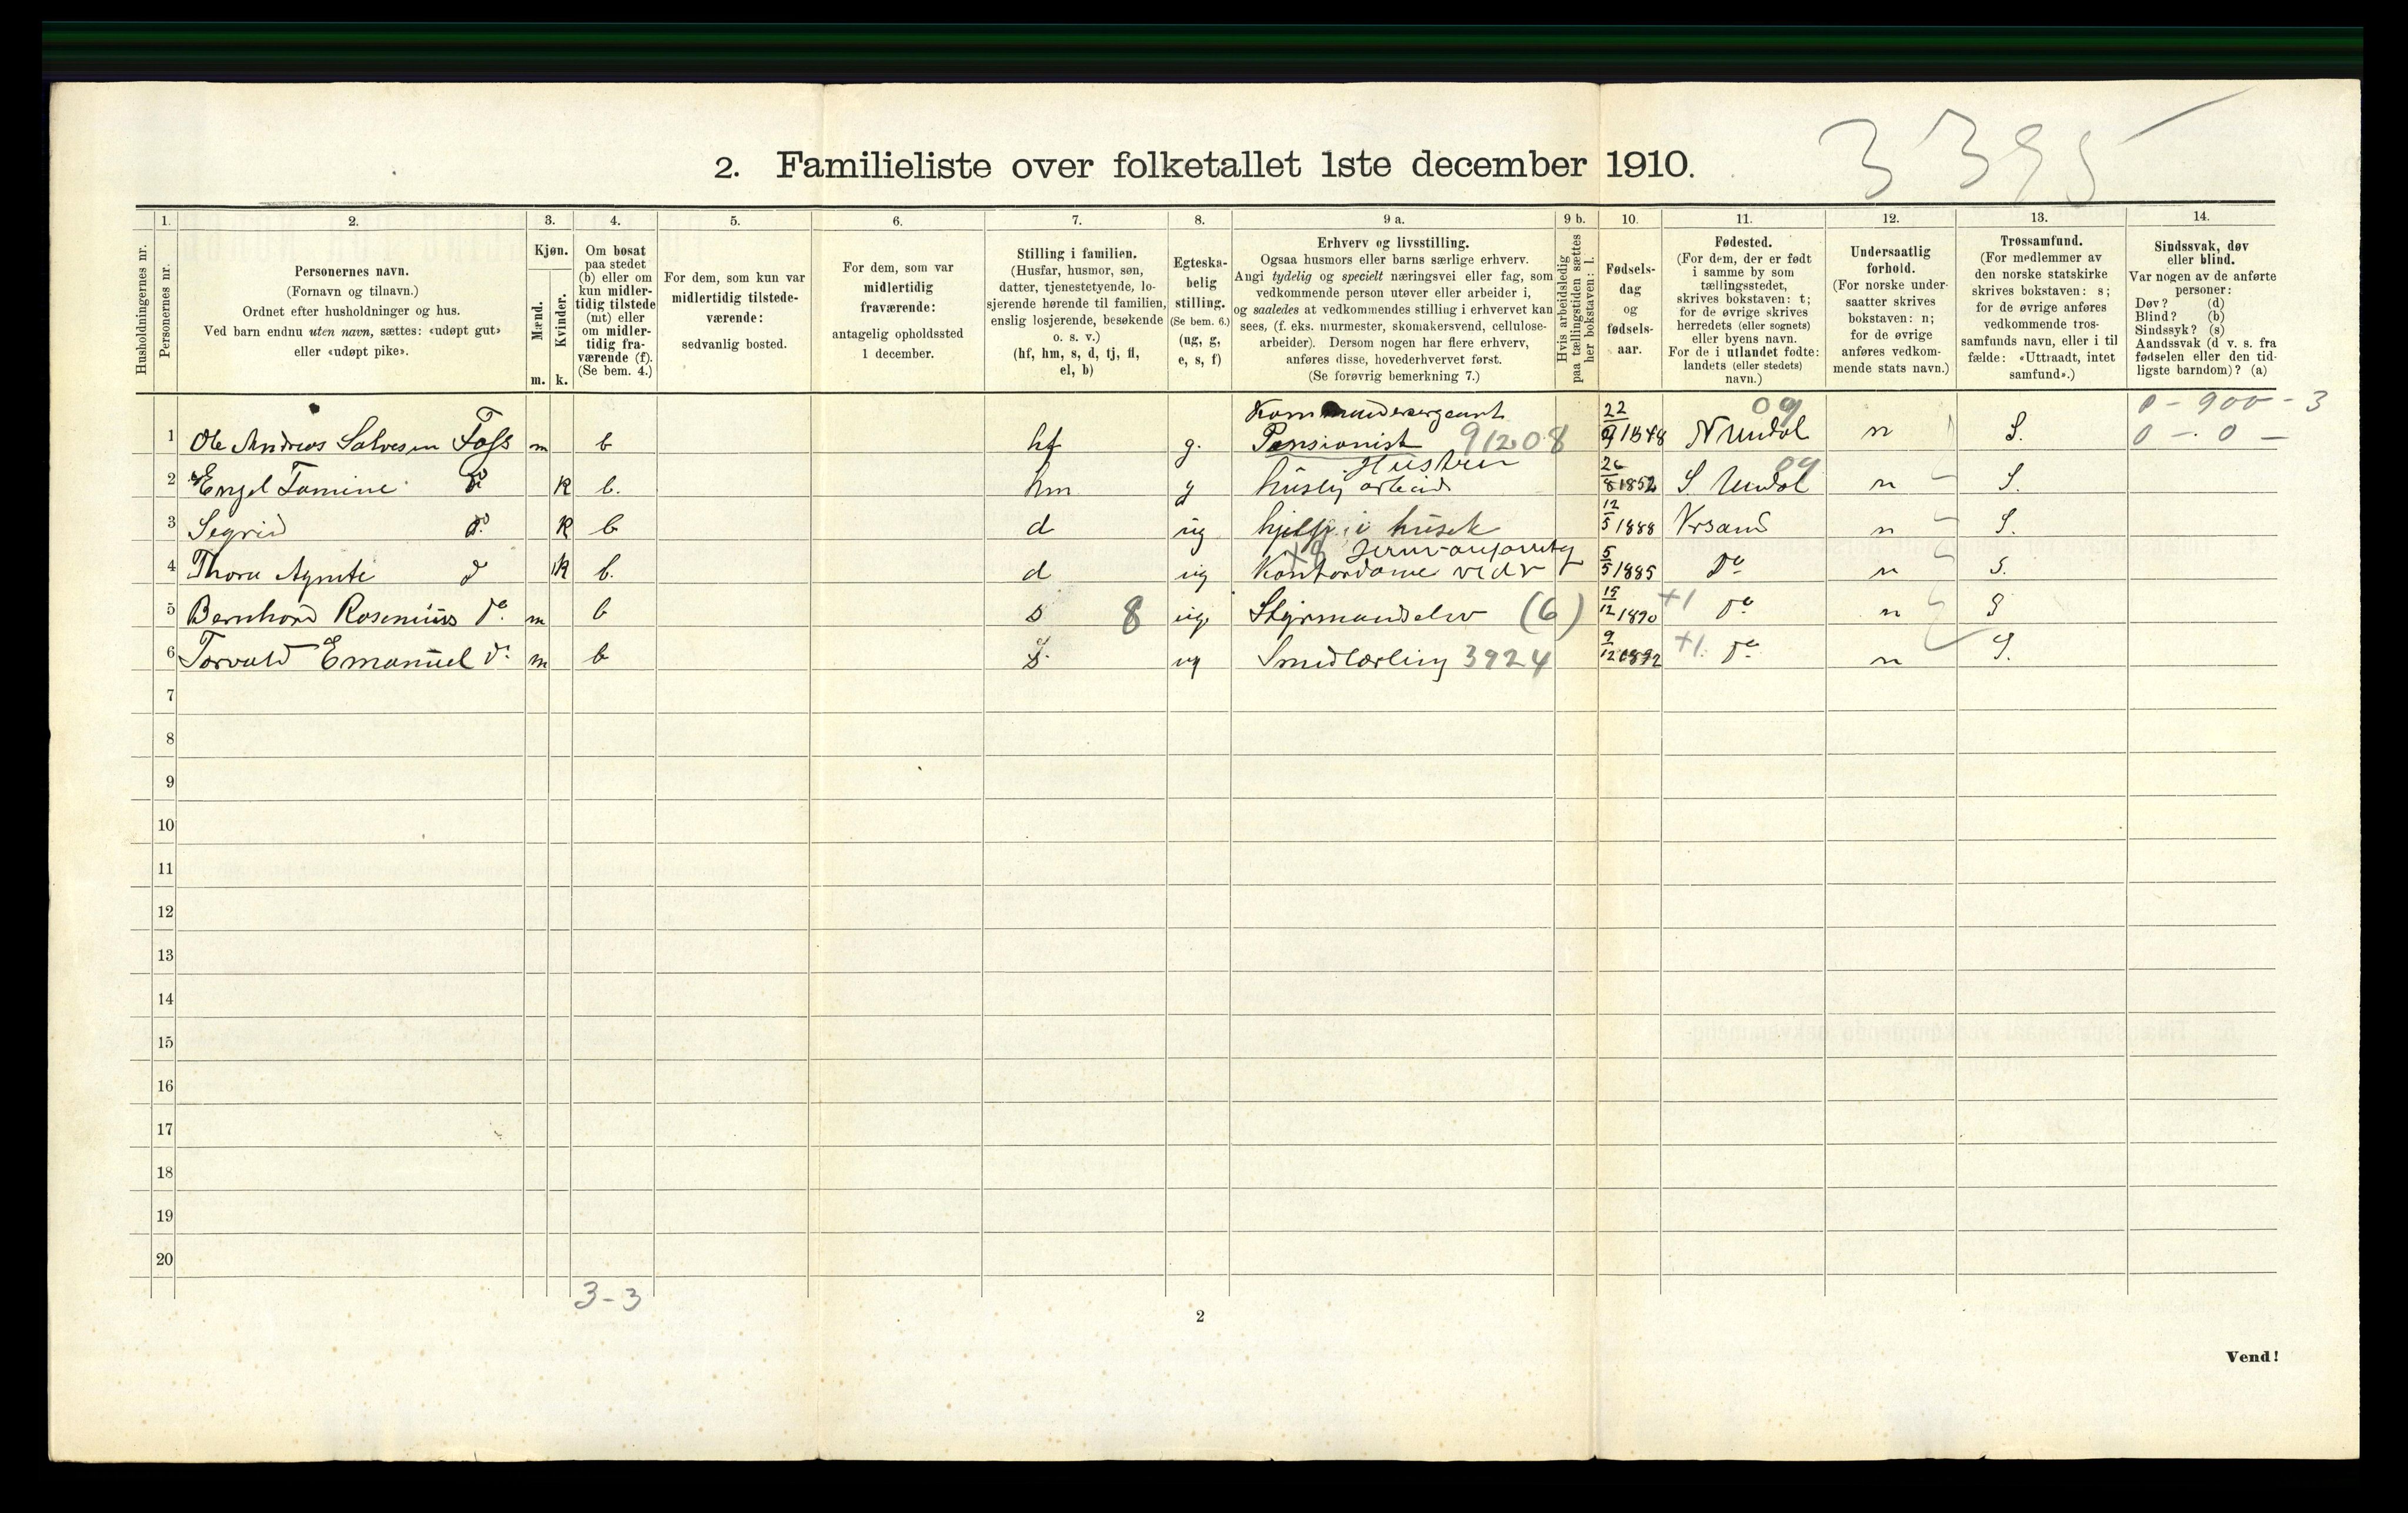 3395
2. Familieliste over folketallet 1ste december 1910.
Husholdningernes nr.
1.
Personernes nr.
2.
Personernes navn.
(Fornavn og tilnavn.)
Ordnet efter husholdninger og hus.
Ved barn endnu uten navn, sættes: «udøpt gut»
eller «udøpt pike».
3.
Kjøn.
Mænd.
Kvinder.
m. k.
4.
Om bosat
paa stedet
(b) eller om
kun midler-
tidig tilstede
(mt) eller
om midler-
tidig fra-
værende (f).
(Se bem. 4.)
5.
For dem, som kun var
midlertidig tilstede-
værende:
sedvanlig bosted.
6.
For dem, som var
midlertidig
fraværende:
antagelig opholdssted
1 december.
7.
Stilling i familien.
(Husfar, husmor, søn,
datter, tjenestetyende, lo-
sjerende hørende til familien,
enslig losjerende, besøkende
o. s. v.)
(hf, hm, s, d, tj, fl,
el, b)
8.
Egteska-
belig
stilling.
(Se bem. 6.)
(ug, g,
e, s, f)
9 a.
Erhverv og livsstilling.
Ogsaa husmors eller barns særlige erhverv.
Angi tydelig og specielt næringsvei eller fag, som
vedkommende person utøver eller arbeider i,
og saaledes at vedkommendes stilling i erhvervet kan
sees, (f. eks. murmester, skomakersvend, cellulose-
arbeider). Dersom nogen har flere erhverv,
anføres disse, hovederhvervet først.
(Se forøvrig bemerkning 7.)
9 b.
Hvis arbeidsledig
paa tællingstiden sættes
her bokstaven: l.
10.
Fødsels-
dag
og
fødsels-
aar.
11.
Fødested.
(For dem, der er født
i samme by som
tællingsstedet,
skrives bokstaven: t;
for de øvrige skrives
herredets (eller sognets)
eller byens navn.
For de i utlandet fødte:
landets (eller stedets)
navn.)
12.
Undersaatlig
forhold.
(For norske under-
saatter skrives
bokstaven: n;
for de øvrige
anføres vedkom-
mende stats navn.)
13.
Trossamfund.
(For medlemmer av
den norske statskirke
skrives bokstaven: s;
for de øvrige anføres
vedkommende tros-
samfunds navn, eller i til
fælde: «Uttraadt, intet
samfund».)
14.
Sindssvak, døv
eller blind.
Var nogen av de anførte
personer:
Døv? (d)
Blind? (b)
Sindssyk? (s)
Aandssvak (d v. s. fra
fødselen eller den tid-
ligste barndom)? (a)
Kommandersergeant 09 0 - 900 - 3
1 Ole Andreas Salvesen Foss m b hf g. Pensionist 91208 22/9 1848 N Undal n S. 0 - . 0 -
Hustru 09
2 Engel Tomine do k b. hm g huslig arbeid 26/8 1852 S. Undal n S.
3 Segrid do. k b d ug hjelp i huset 12/5 1888 Krsand n S.
4 Thora Agnete d k b. d ug Kontordame ved 5/5 1885 do n S.
5 Bernhard Rasmuss do. m b s 8 ug. Styrmandselev (6) 15/12 1890 +1 do n S
6 Torvald Emanuel d. m b s. ug Smedlærling 3924 9/12 1892 +1. do n S.
7
8
9
10
11
12
13
14
15
16
17
18
19
20
3-3
2
Vend!